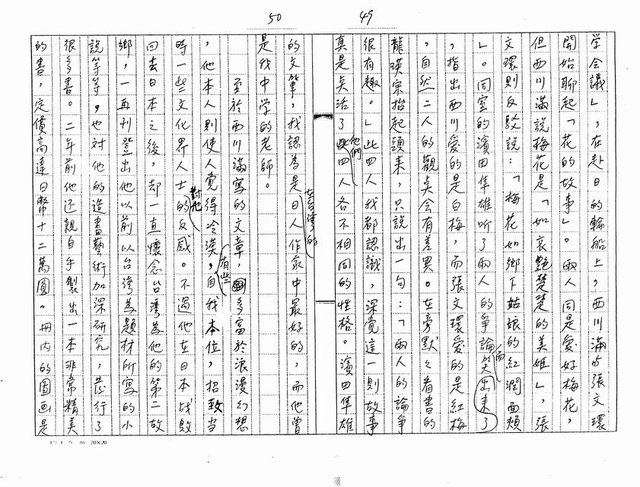 50
49
學会議」,在赴日的輪船上,西川滿与張文環
開始聊起「花的故事」。兩人同是愛好梅花,
但西川滿說梅花是「如哀艷楚楚的美姬」,張
文環則反駁說:「梅花如鄉下姑娘的紅潤面頰
」。同室的濱田隼雄听了兩人的爭論而笑出來了
,指出西川愛的是白梅,而張文環愛的是紅梅
,自然二人的觀点会有差異。在旁默々看書的
龍瑛宗抬起頭來,只說出一句:「兩人的論爭
很有趣。」此四人我都認識,深覺這一則故事
真是点活了他們此四人各不相同的性格。濱田隼雄
的文筆,我認為是在台灣的日人作家中最好的,而他曾
是我中学的老師。
至於西川滿寫的文章,多富於浪漫幻想
,他本人則使人覺得冷漠。有些自我本位,招致当
時一些文化界人士對他的反感。不過他在日本战敗
回去日本之後,却一直懷念台灣為他的第二故
鄉,一再刊登出他以前以台灣為題材所寫的小
說等等,也对他的造書藝術加深研究,發行了
很多書。二年前他还親自手製出一本非常精美
的書,定價高達日幣十二萬圓。冊內的圖画是